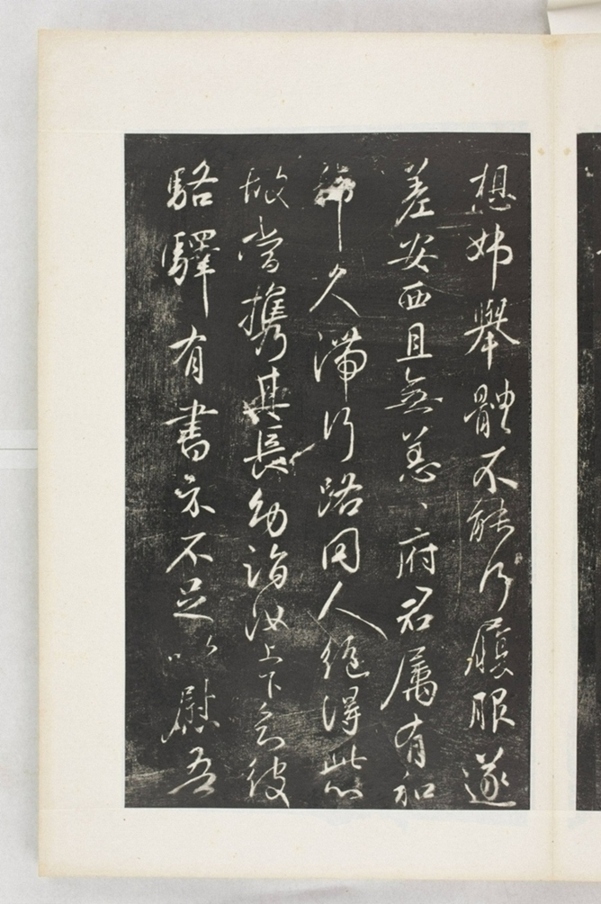 想姊舉體不能行履服遂
差安西且無恙、府君屬有和
久滯行路同人絶得此
故當携其長幼詣汝上下言彼
駱驛有書示不足以慰吾